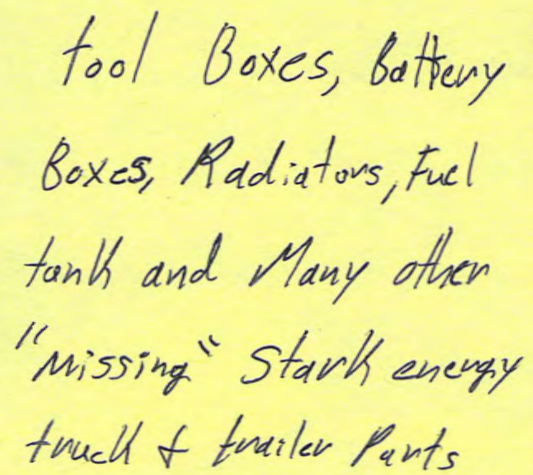 tool Boxes, Battery
Boxes, Radiators, Fuel
tank and Many other
"Missing" Stark energy
truck & trailer Parts